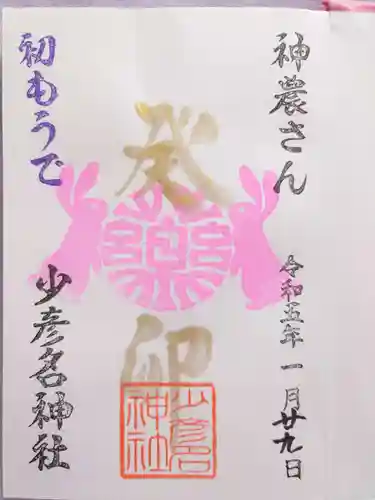 神農さん
令和五年一月廿九日
癸卯
初もうで
少彦名神社
少彦名
神社